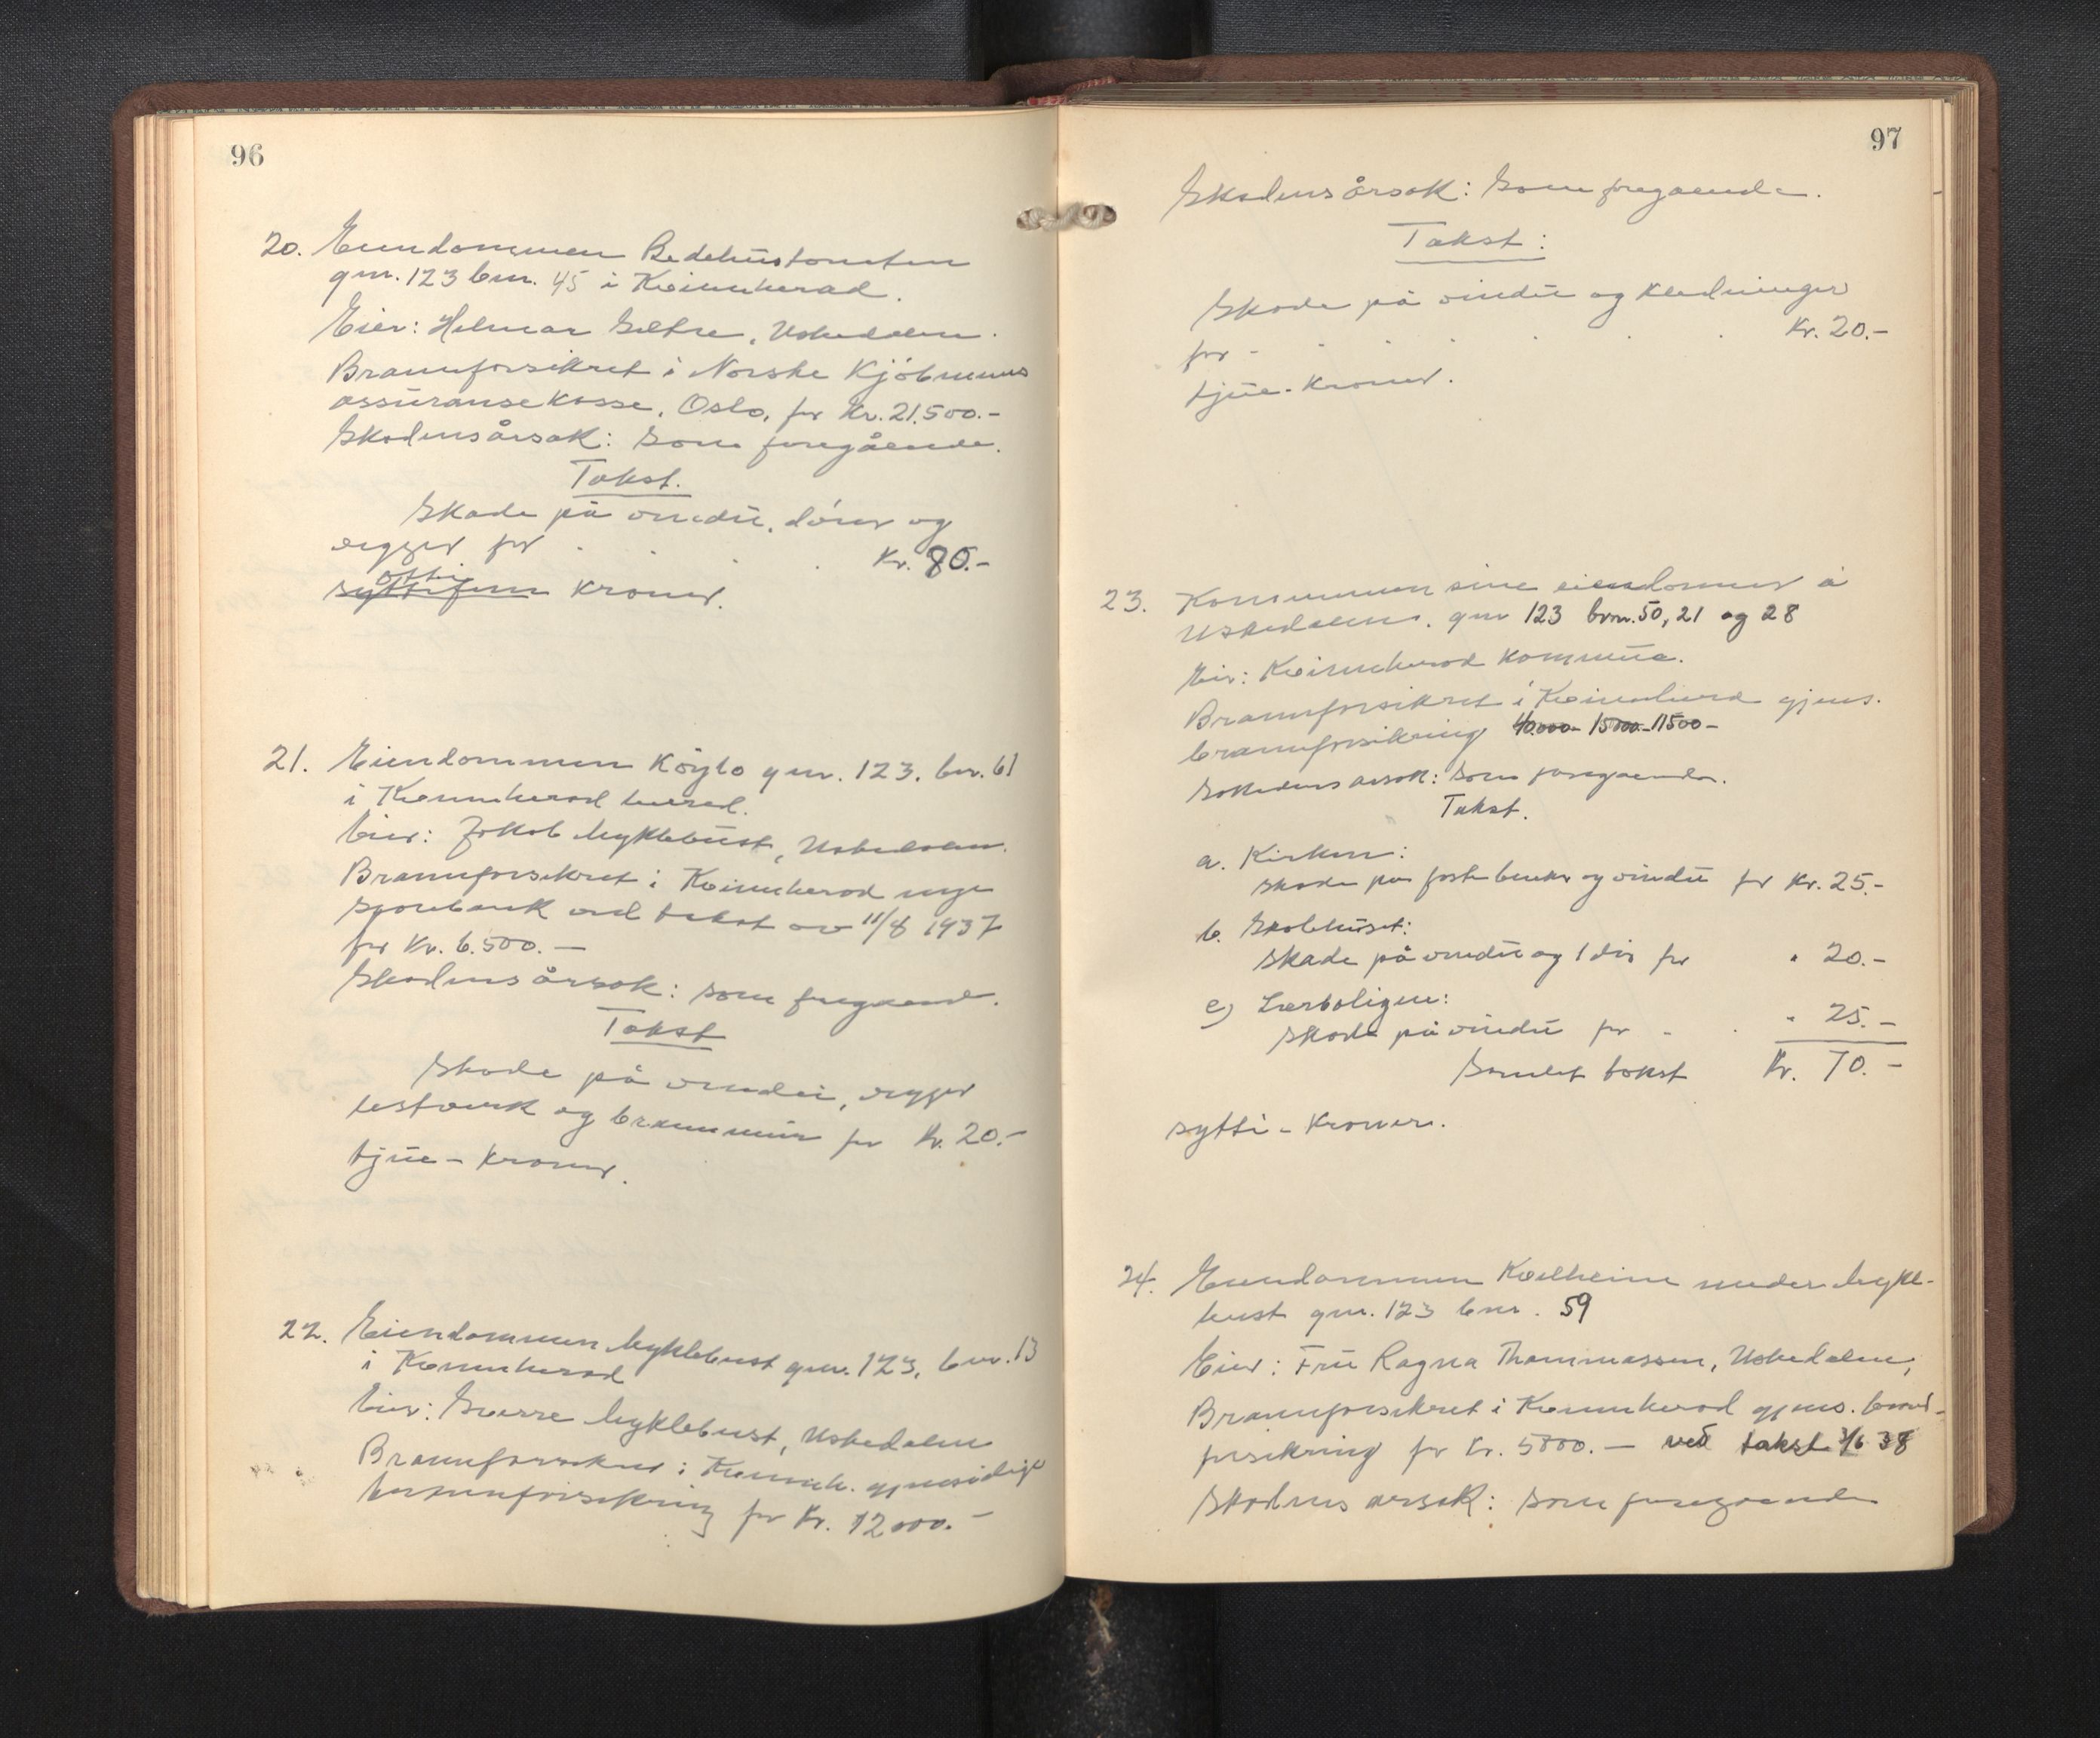 96
20. Eiendommen Bedehustomten
gnr. 123 bnr. 45 i Kvinnherad.
Eier: Helmar Sætre, Uskedalen.
Brannforsikret i Norske Kjøbmenns
assuransekasse, Oslo, for Kr. 21.500.-
Skadens årsak: Som foregående.
Takst.
Skade på vindu, dører og
vegger for . . . Kr. 80.-
otti
syttifem kroner.
21. Eiendommen gnr. 123, bnr. 61
i Kvinnherad herad.
Eier: Jakob Myklebust, Uskedalen.
Brannforsikret i Kvinnherad nye
Sparebank ved takst av 11/8 1937
for Kr. 6.500.-
Skadens årsak: Som foregående.
Takst
Skade på vindu, vegger
listverk og brannmur for Kr. 20.-
tjue - kroner.
22. Eiendommen Myklebust gnr. 123, bnr. 13
i Kvinnherad
Eier: Sverre Myklebust, Uskedalen
Brannforsikret i Kvinnh. gjensidige
brannforsikring for Kr. 12000.-
97
Skadens årsak: Som foregående.
Takst:
Skade på vindu og kledninger
for - . . . . . Kr. 20.-
tjue - kroner.
23. Kommunen sine eiendommer i
Uskedalen. gnr 123 bnr. 50, 21 og 28
Eier: Kvinnherad kommune.
Brannforsikret i Kvinnherad gjens.
brannforsikring 40.000- 15000- 11500-
Skadens årsak: Som foregående.
Takst.
a. Kirken:
skade på faste benker og vindu for Kr. 25.-
b. Skolehuset:
Skade på vindu og 1 dør for " 20.-
c) Lærboligen:
Skade på vindu for - . " 25.-
Samlet takst Kr. 70.-
sytti - kroner.
24. Eiendommen Kvelheim under Mykle-
bust gnr. 123 bnr. 59
Eier: Fru Ragna Thommassen, Uskedalen,
Brannforsikret i Kvinnherad gjens. brand-
forsikring for Kr. 5800.- ved takst 3/6 38
Skadens årsak: Som foregående